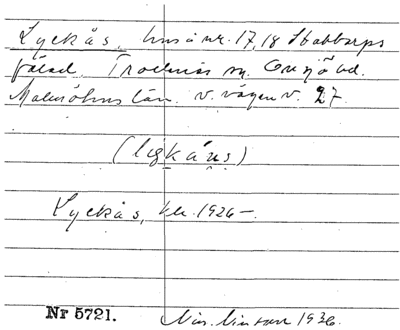 Lyckås, hus å nr. 17, 18 Stabbarps
fälad, Trollenäs sn. Onsjö hd.
Malmöhus län. v. vägen v. 27.
(ligkå̀us)
Lyckås, kll. 1926 –.
Nr 5721. 1936.